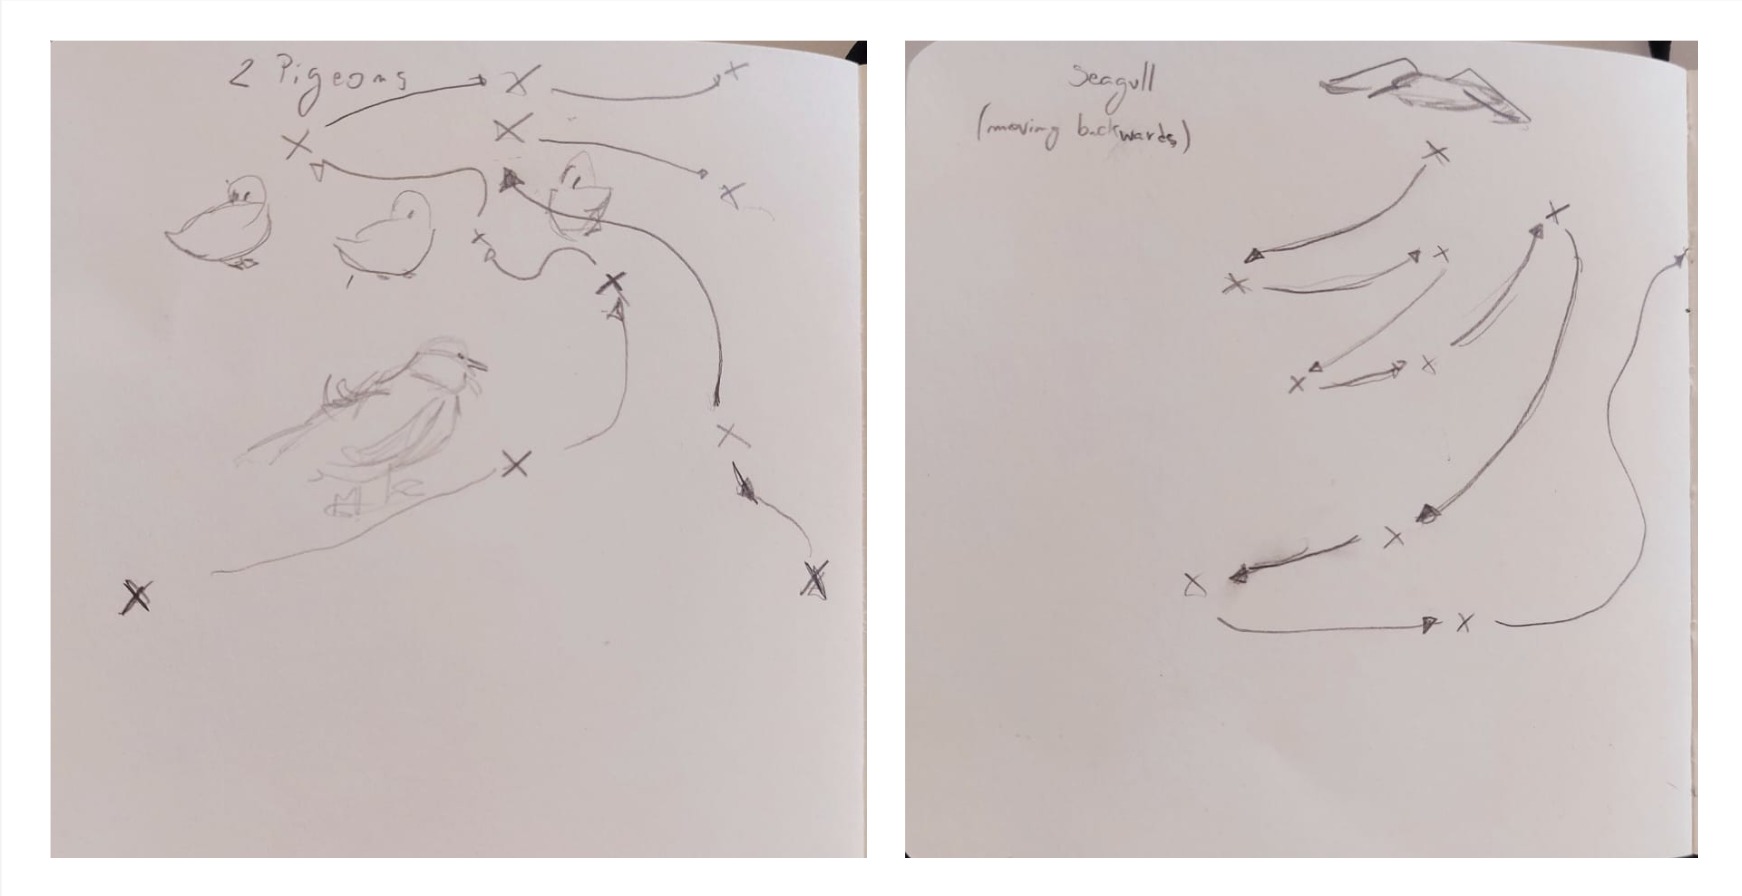 2 Pigeons
Seagull
(moving backwards)